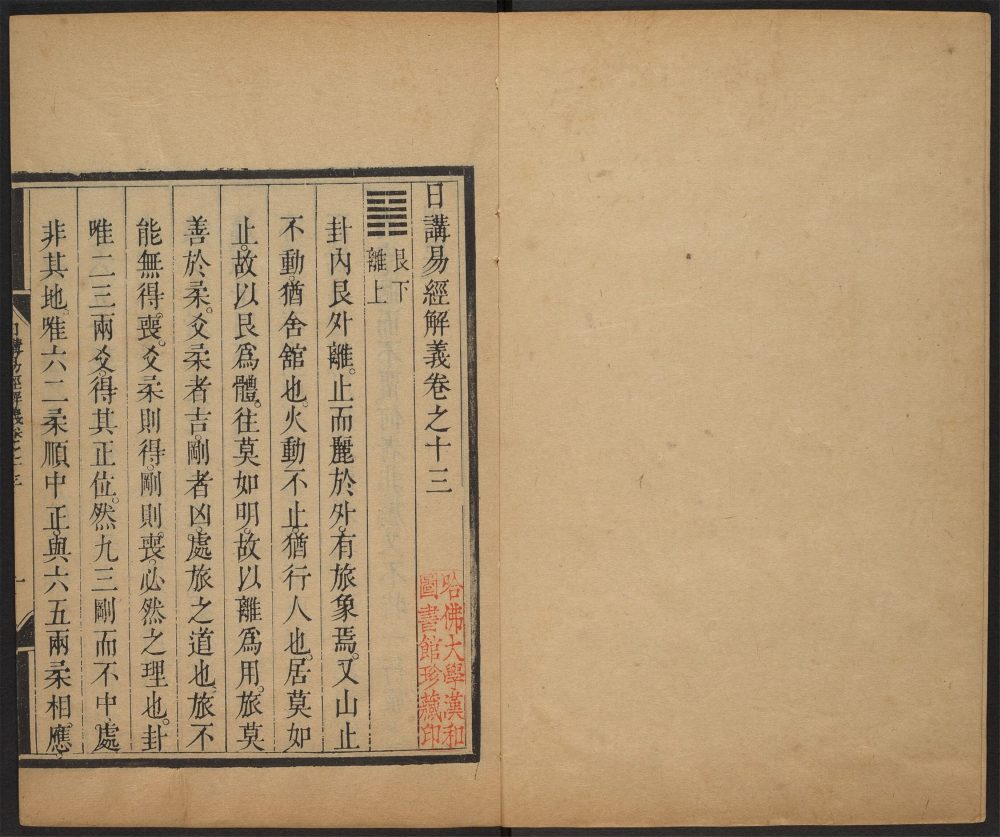 日講易經解義卷之十三
哈佛大學漢和
圖書館珍藏印
艮下
離上
卦內艮外離。止而麗於外。有旅象焉。又山止
不動。猶舍舘也。火動不止。猶行人也。居莫如
止。故以艮爲體。往莫如明。故以離爲用。旅莫
善於柔。爻柔者吉。剛者凶。處旅之道也。旅不
能無得喪。爻柔則得。剛則喪。必然之理也。卦
唯二三兩爻。得其正位。然九三剛而不中。處
非其地。唯六二柔順中正。與六五兩柔相應。
日講易經解義卷之十三
一